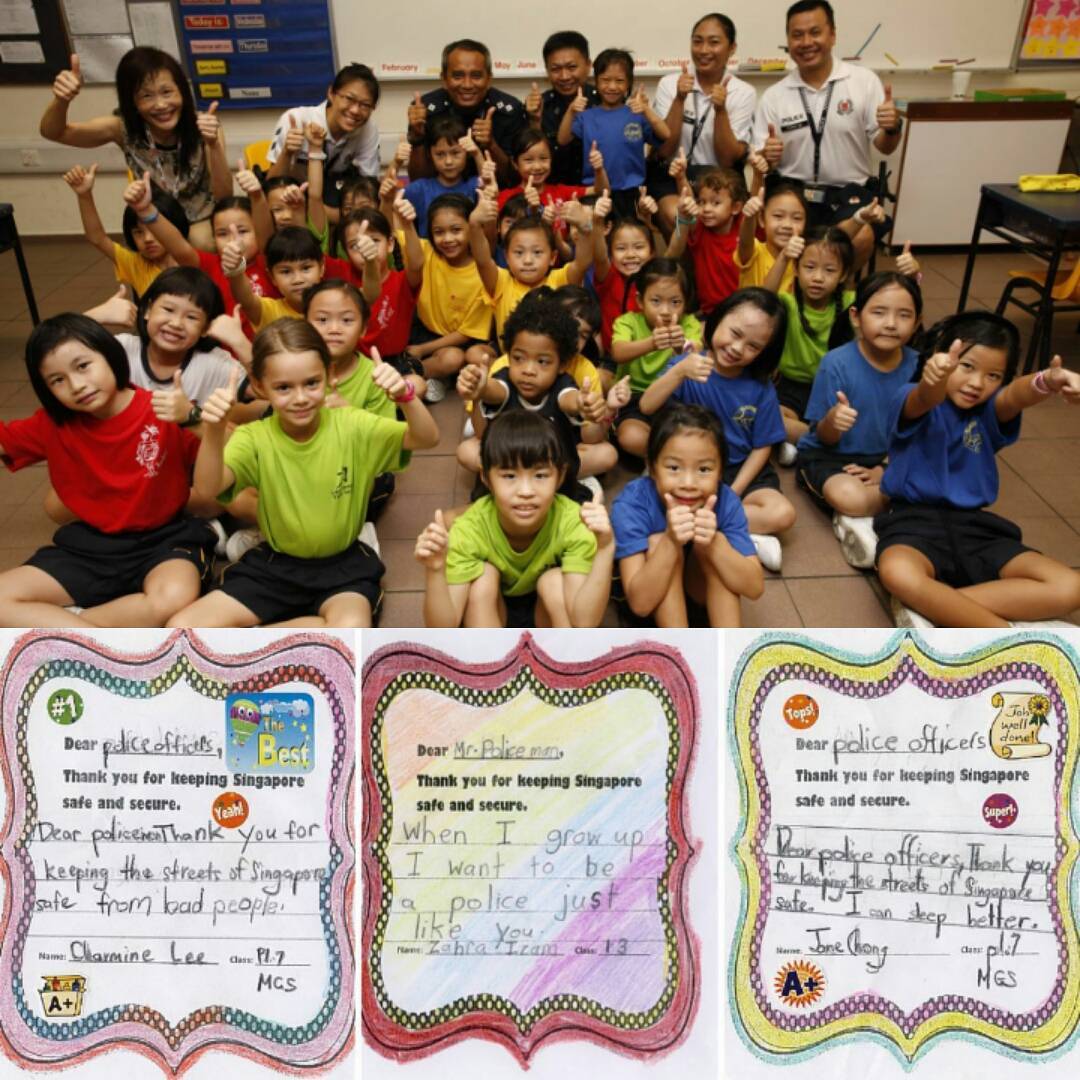 Today is
Wednesday
Thursday
February
May
June
October
December
POLICE
#1
The
Best
Dear police officers,
Thank you for keeping Singapore
safe and secure.
Yeah!
Dear policemen Thank you for
keeping the streets of Singapore
safe from bad people.
Name: Charmine Lee Class: P1.7
MGS
A+
Dear Mr. Policeman,
Thank you for keeping Singapore
safe and secure.
When I grow up
I want to be
a police just
like you.
Name: Zahra Izam Class: 1.3
Tops!
Job
well
done!
Dear police officers
Thank you for keeping Singapore
safe and secure.
Super!
Dear police officers, Thank you
for keeping the streets of Singapore
safe. I can sleep better.
Name: Jone Chong Class: p1.7
MGS
A+